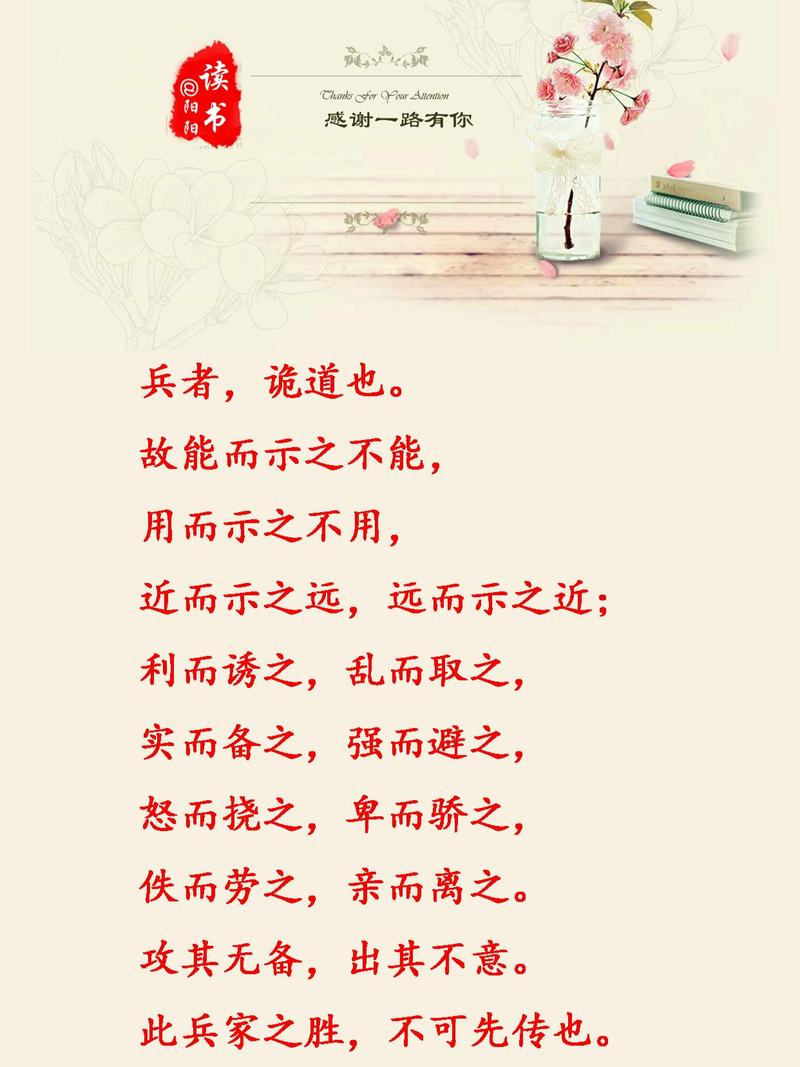 读书
@阳阳
Thanks For Your Attention
感谢一路有你
兵者，诡道也。
故能而示之不能，
用而示之不用，
近而示之远，远而示之近；
利而诱之，乱而取之，
实而备之，强而避之，
怒而挠之，卑而骄之，
佚而劳之，亲而离之。
攻其无备，出其不意。
此兵家之胜，不可先传也。